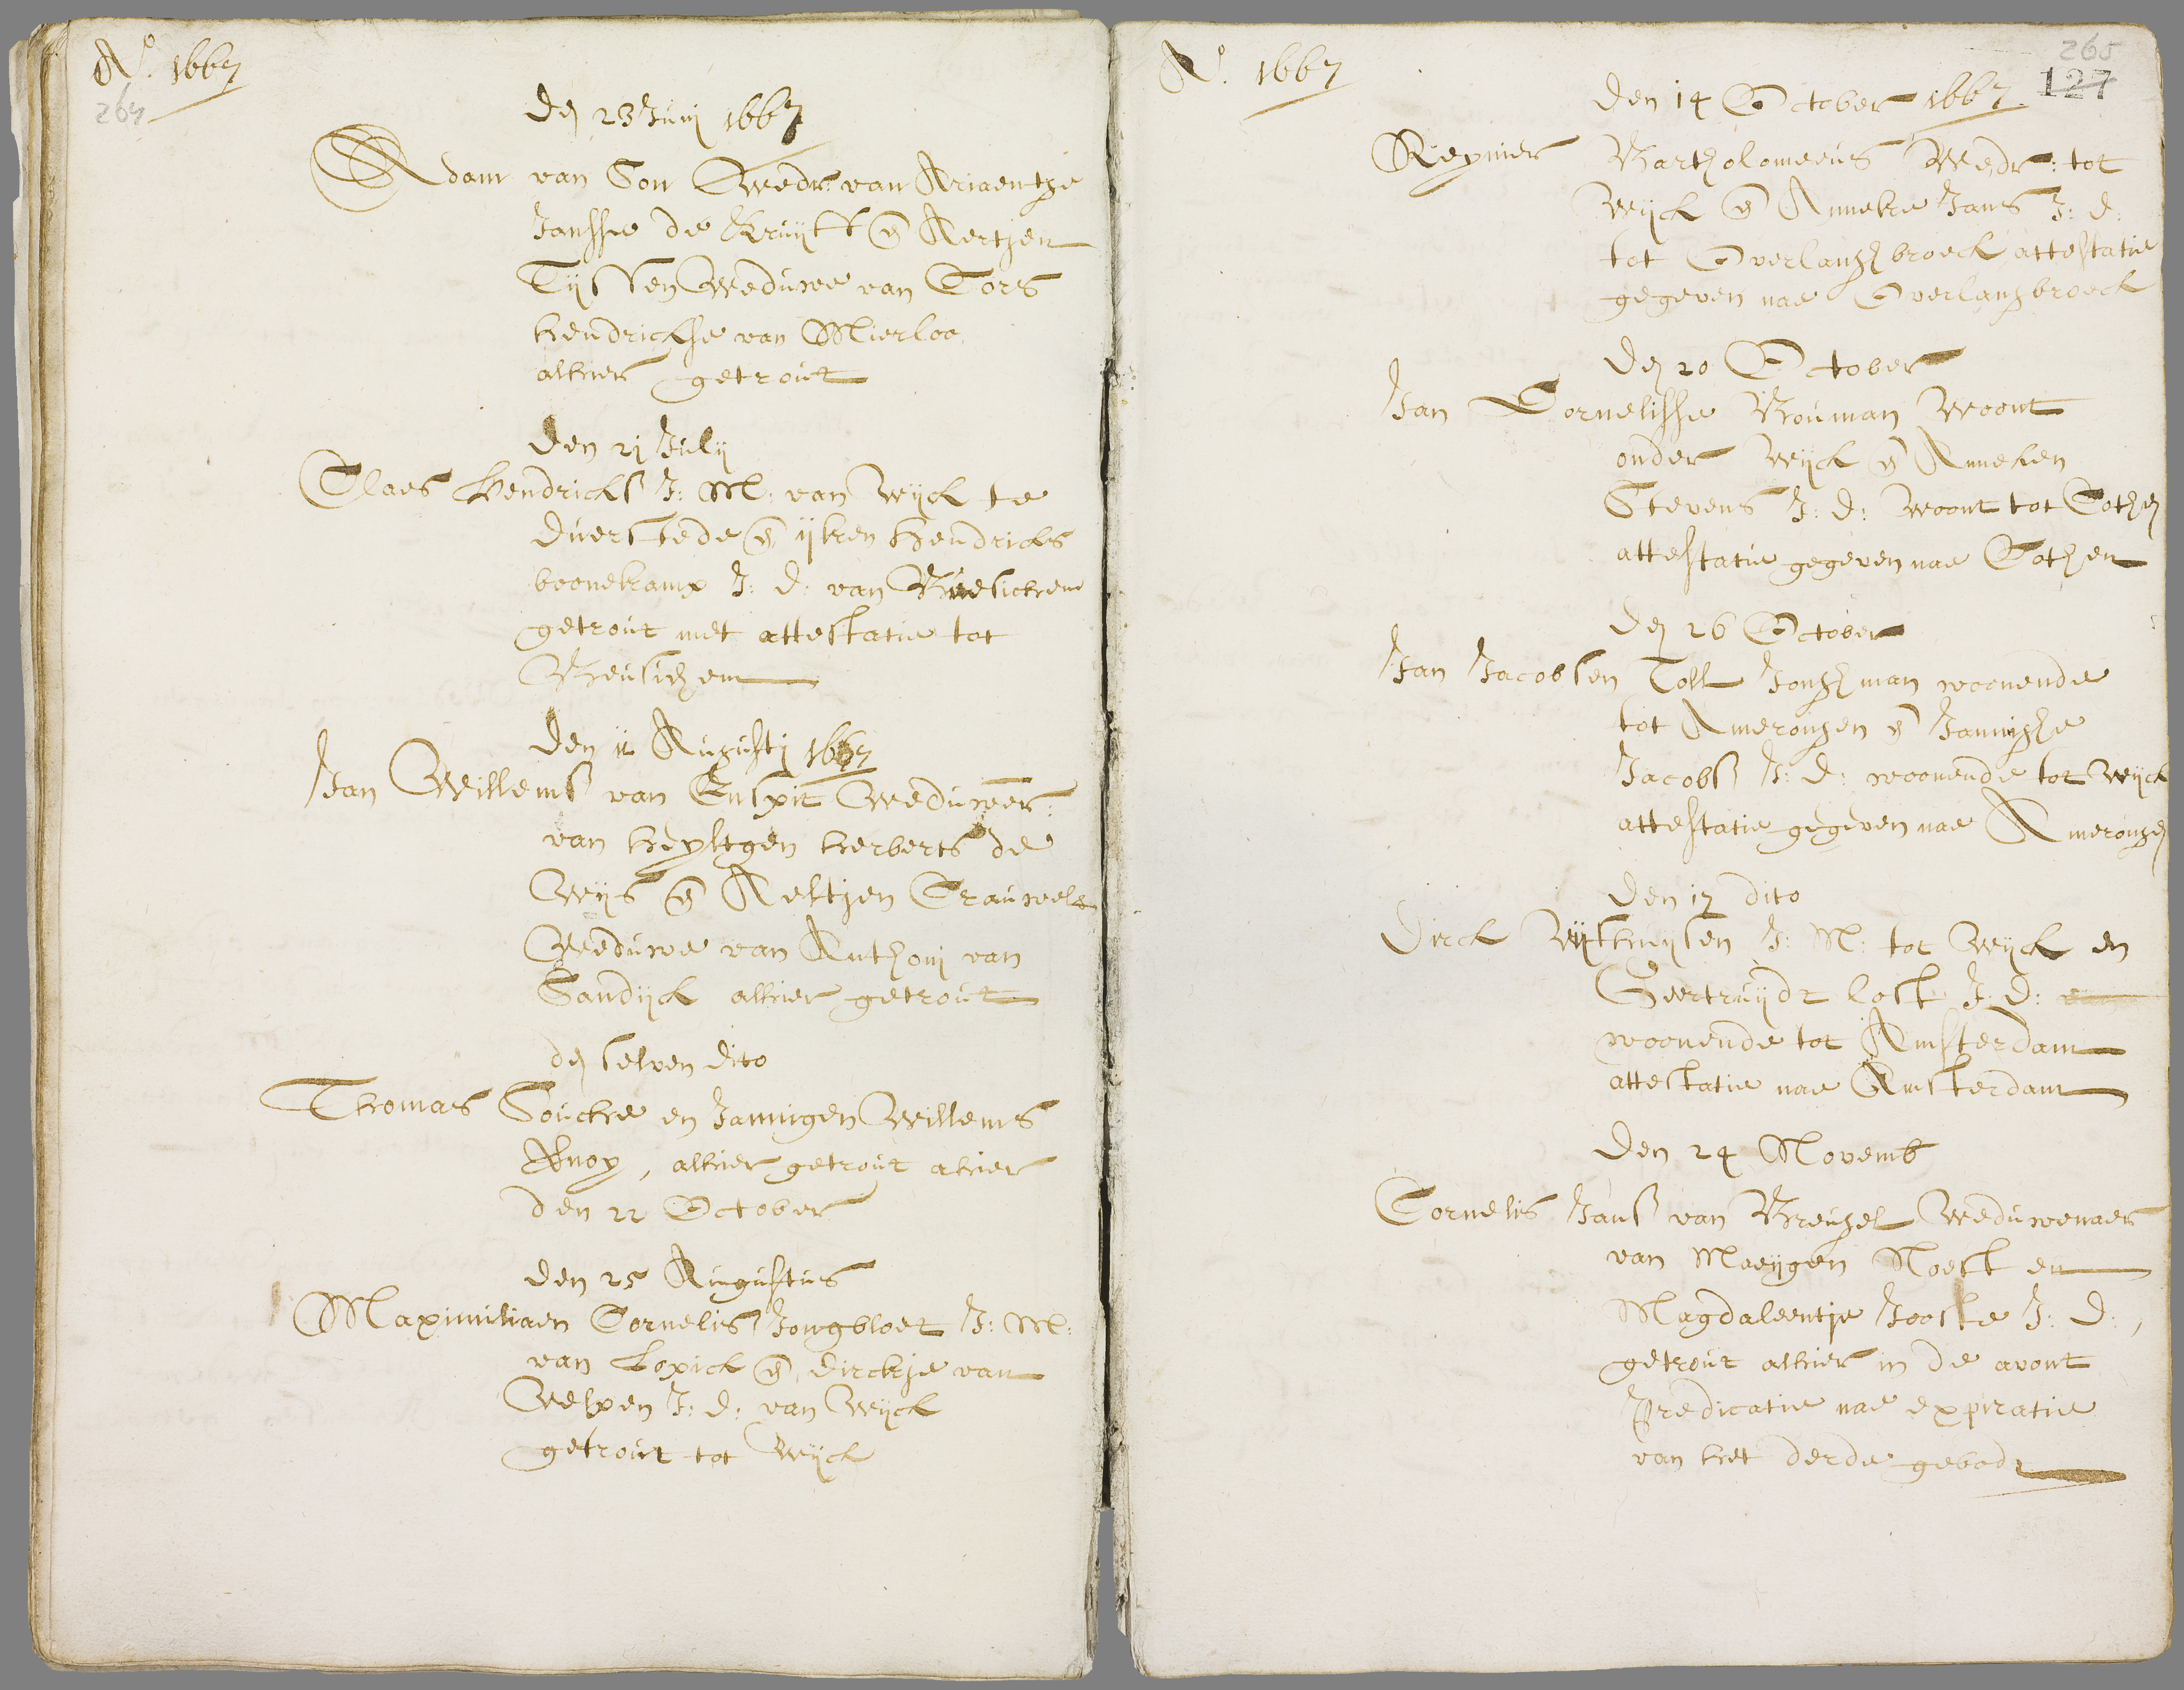 Ao. 1667
264
den 23 Junij 1667
Adam van Son Wedr: van Ariaentge
Jansse de Kruijff en Aertjen
Tijssen Weduwe van Cors
hendrickse van Mierloo
alhier getrout
den 21 Julij
Claes Hendricks J: M: van Wijck te
duerstede en ijken Hendricks
boonekamp J: d: van
getrout met attestatie tot
Beusichem
den 11 Augusti 1667
Jan Willems van Enspit Weduwer:
van heyltgen herberts de
Wijs en Aeltjen Grauwels
Weduwe van Anthoni van
Sandijck alhier getrout
den selven dito
Thomas Souche en Jannigen Willems
Knoy, alhier getrout alhier
den 22 October
den 25 Augustus
Maximiliaen Cornelis Jongbloet J: M:
van Lopick en dirckje van
Welpen J: d: van Wijck
getrout tot Wijck
Ao. 1667
265
127
den 14 October 1667
Reynier Bartholomeeus Wedr: tot
Wijck en Anneke Jans J: d:
tot Overlangbroeck attestatie
gegeven nae Overlangbroeck
den 20 October
Jan Cornelisse Bouman Woont
onder Wijck en Anneken
Stevens J: d: Woont tot Cothen
attestatie gegeven nae Cothen
den 26 October
Jan Jacobsen Toll Jonghman woonende
tot Amerongen en Jannighe
Jacobs J: d: woonende tot Wijck
attestatie gegeven nae Amerongen
den 17 dito
Dirck J: M: tot Wijck en
Geertruijdt lost J: d:
woonende tot Amsterdam
attestatie nae Amsterdam
den 24 Novemb
Cornelis Jans van Breugel Weduwenaer
van Maeijgen Noest en
Magdaleentje Jooste J: d:,
getrout alhier in de avont
Predicatie nae expiratie
van het derde gebodt